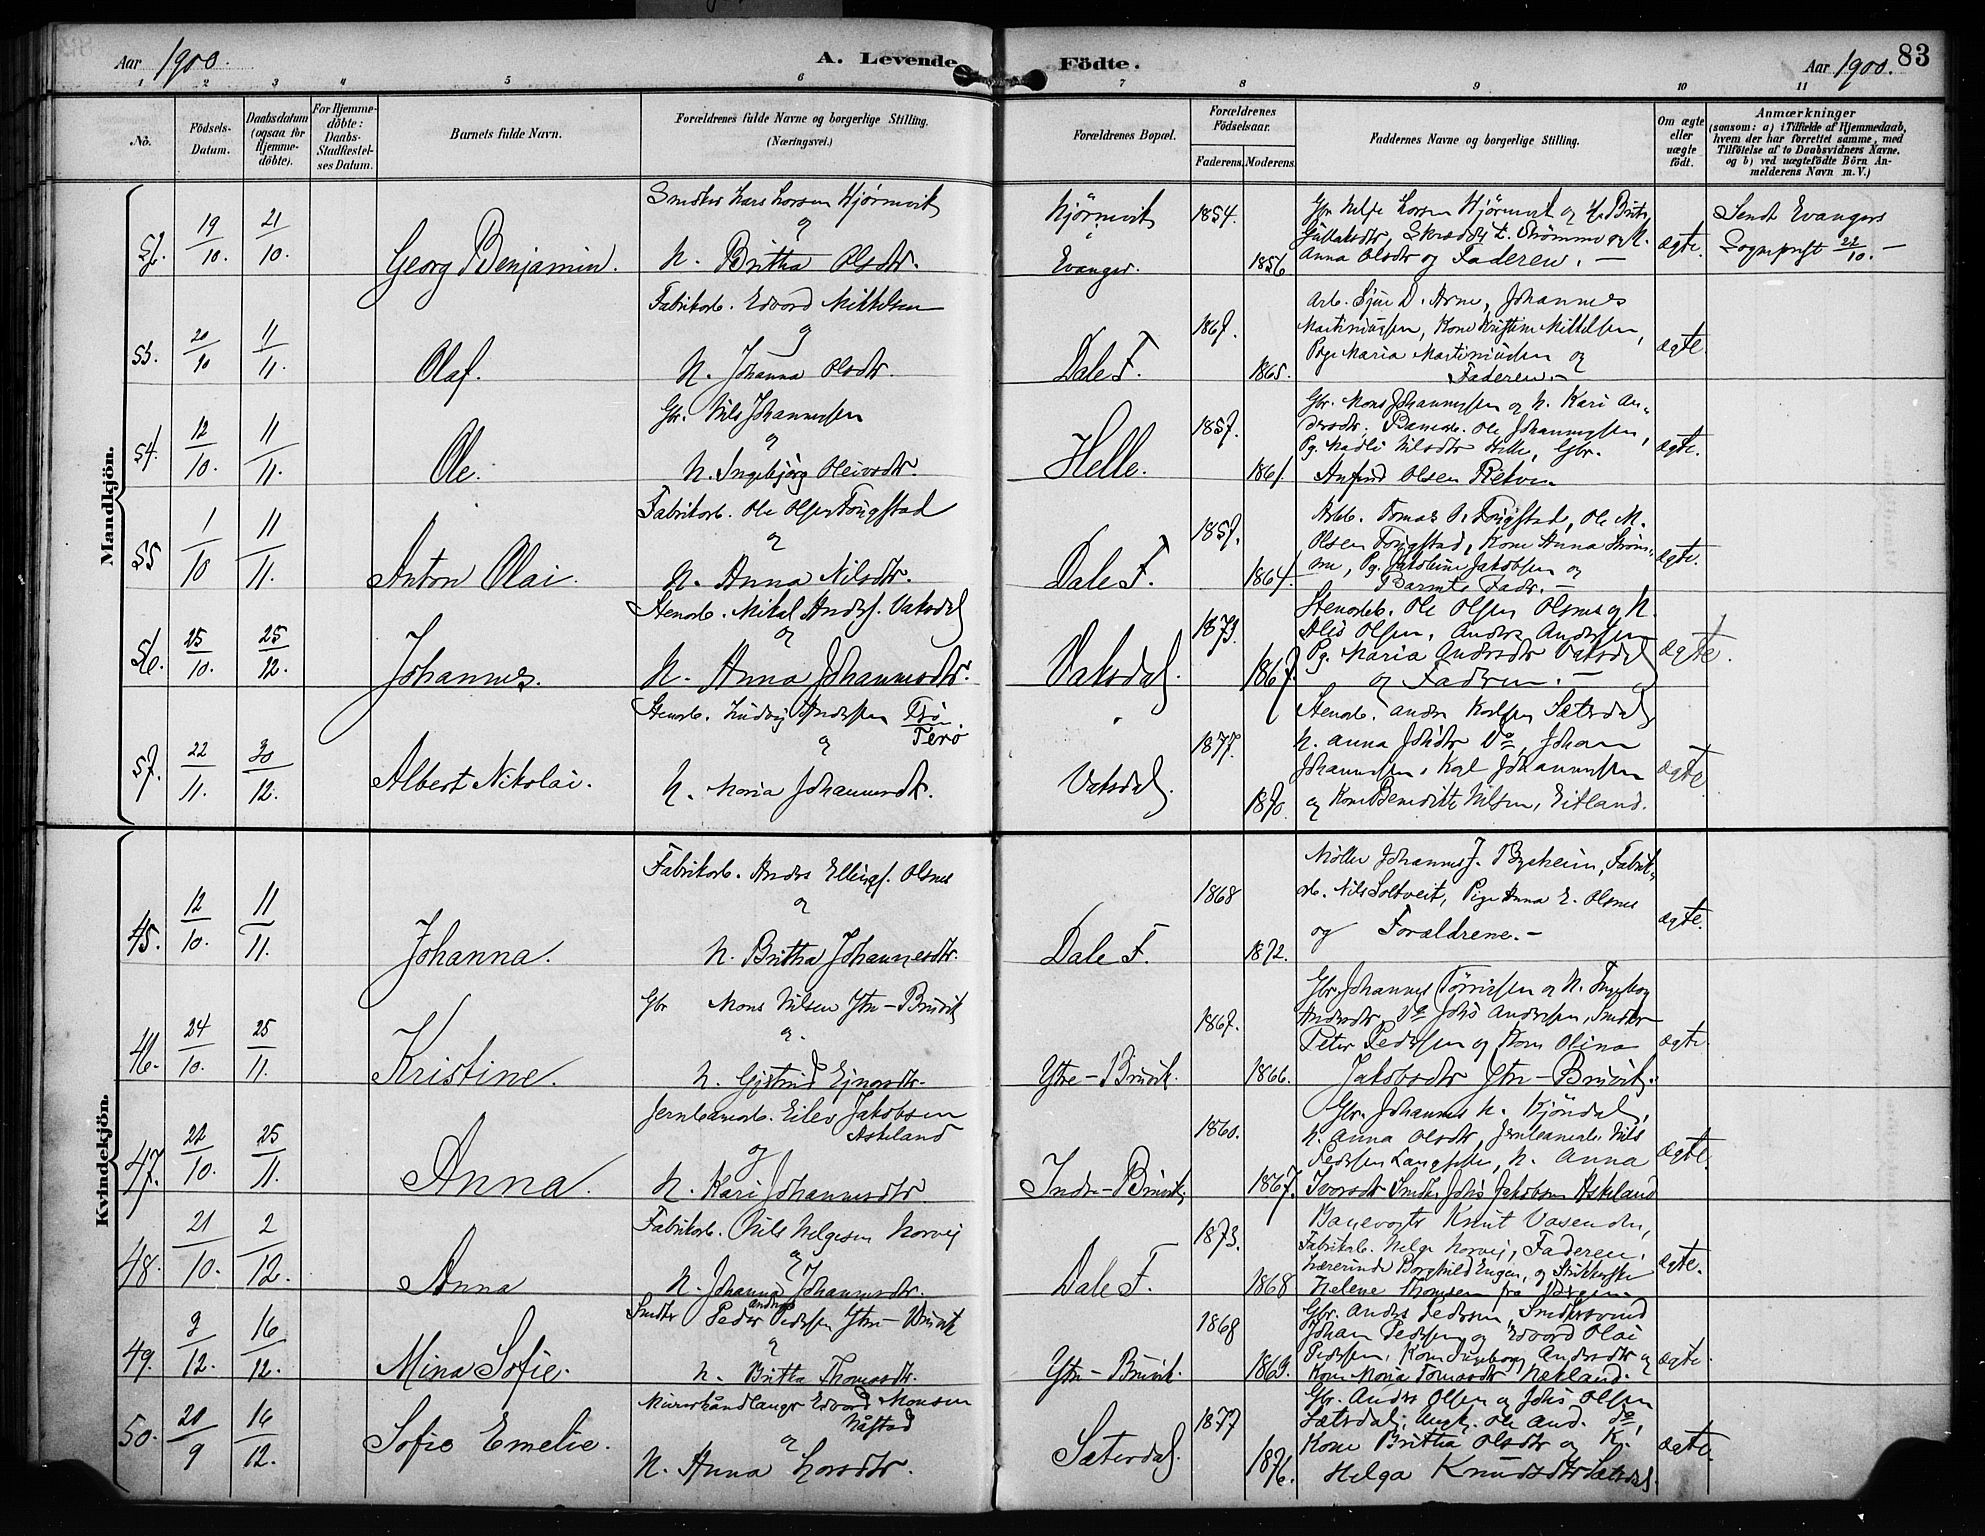 Aar 1900.
A. Levende Födte.
Aar 1900.
83
1 2 3 4 5 6 7 8 9 10 11
No.
Födsels-Datum.
Daabsdatum (ogsaa for Hjemme-döbte).
For Hjemme-döbte: Daabs-Stadfæstel-ses Datum.
Barnets fulde Navn.
Forældrenes fulde Navne og borgerlige Stilling. (Næringsvei.)
Forældrenes Bopæl.
Forældrenes Födselsaar.
Faderens. Moderens.
Faddernes Navne og borgerlige Stilling.
Om ægte eller uægte födt.
Anmærkninger
(saasom: a) i Tilfælde af Hjemmedaab, hvem der har forrettet samme, med Tilföielse af to Daabsvidners Navne. og b) ved uægtefödte Börn An-melderens Navn m. V.)
Mandkjön.
19/10. 21/10.
Georg Benjamin.
Smeder Lars Larsen Hjørnevik
og
H. Britha Olsdtr.
Hjørnevik
i
Evanger.
1854.
1856
Anna Olsdtr og Faderen. —
ægte.
Sendt Evangers
Sogneprest 22/10. —
53. 20/10 11/11.
Olaf.
Fabrikarb. Edvard Mikkelsen
og
H. Johanna Olsdtr.
Dale F.
1867.
1865.
Arb. Sjur D. Arne, Johannes
Martinussen, Kone Kristine Mikkelsen,
Pige Maria Martinussen og
Faderen. —
ægte.
54. 12/10. 11/11.
Ole.
Gbr. Nils Johannessen
og
H. Ingebjørg Oleivsdtr.
Helle.
1857.
1861.
Gbr. Mons Johannessen og H. Kari An-
dersdtr. Ole Johannessen,
Pg. Nilsdtr Helle, Gbr.
Anfind Olsen
ægte.
55 1/10 11/11.
Anton Olai.
Fabrikarb. Ole Olsen Fougstad
og
H. Anna Nilsdtr.
Dale F.
1857.
1864.
Arb. Tomas O. Fougstad, Ole M.
Olsen Fougstad, Kone Anna Strøm-
me, Pg. Jakobine Jakobsen og
Barnets Fader. —
ægte.
56. 25/10. 25/12.
Johannes.
Stenarb. Mikal Anders. Vaksdal
og
H. Anna Johannesdtr.
Vaksdal.
1873.
1867.
Stenarb. Ole Olsen Olsnes og H.
Olsen, Anders Andersen
Pg. Maria Andersdtr Vaksdal
og Fadren. —
ægte.
57. 22/11. 30/12.
Albert Nikolai.
Stenarb. Ludvig Andersen
og
H. Maria Johannesdtr.
Vaksdal.
1877.
1870.
Stenarb. Anders Karlsen Sætersdal
H. Anna Johsdtr Do, Johan
Johannessen, Karl Johannessen
og Kone Benedikte Nilsen, Eitland.
ægte.
Kvindekjön.
45. 12/10. 11/11.
Johanna.
Fabrikarb. Anders Ellings. Olsnes
og
H. Britha Johannesdtr.
Dale F.
1868
1872.
Møller Johannes J. Bysheim, Fabrik-
arb. Nils Soltveit, Pige Anna E. Olsnes
og Forældrene. —
ægte.
46. 24/10. 25/11.
Kristine.
Gbr Mons Nilsen Ytre-Bruvik
og
H. Gjertrud
Ytre-Bruvik.
1867.
1866.
Gbr. Johannes og H. Ingebor
Andersdtr, Do Johs Andersen, Smeder
Peter Pedersen og Kone Olina
Jakobsdtr Ytre-Bruvik.
ægte.
47. 22/10. 25/11.
Anna.
Jernbanearb. Eilev Jakobsen
Askeland
og
H. Kari Johannesdtr.
Indre-Bruvik.
1860.
1867.
Gbr. Johannes N. Kjöndal,
H. Anna Olsdtr, Jernbanearb. Nils
Pedersen H. Anna
Iversdtr Smeder Johs Jakobsen Askeland
ægte.
48. 21/10. 2/12.
Anna
Fabrikarb. Nils Helgesen
og
H. Johanna Johannesdtr.
Dale F.
1873.
1868
Banevogter Knut Vasenden,
Fabrikarb. Helge Faderen.
Lærerinde Borghild Engen, og
Helene Thomsen fra Bergen.
ægte.
49. 3/12. 16/12.
Mina Sofie.
Smeder Peder Anders Pedersen Ytre-Bruvik
og
H. Britha Thomasdtr.
Ytre-Bruvik.
1868
1869.
Gbr. Anders Pedersen, Smedsvend
Johan Pedersen og Edvard Olai
Pedersen, Kone Ingeborg Andersdtr og
Kone Maria Tomasdtr
ægte.
50. 20/9 16/12.
Sofie Emelie.
Murerhåndlanger Edvard Monsen
Våfstad
og
H. Anna Larsdtr.
Sæterdal.
1877
1876.
Gbr. Anders Olsen og Johs Olsen
Sætersdal, Ungk. Ole And. do,
Kone Britha Olsdtr og K.
Helga Knudsdtr Sætersdal.
ægte.